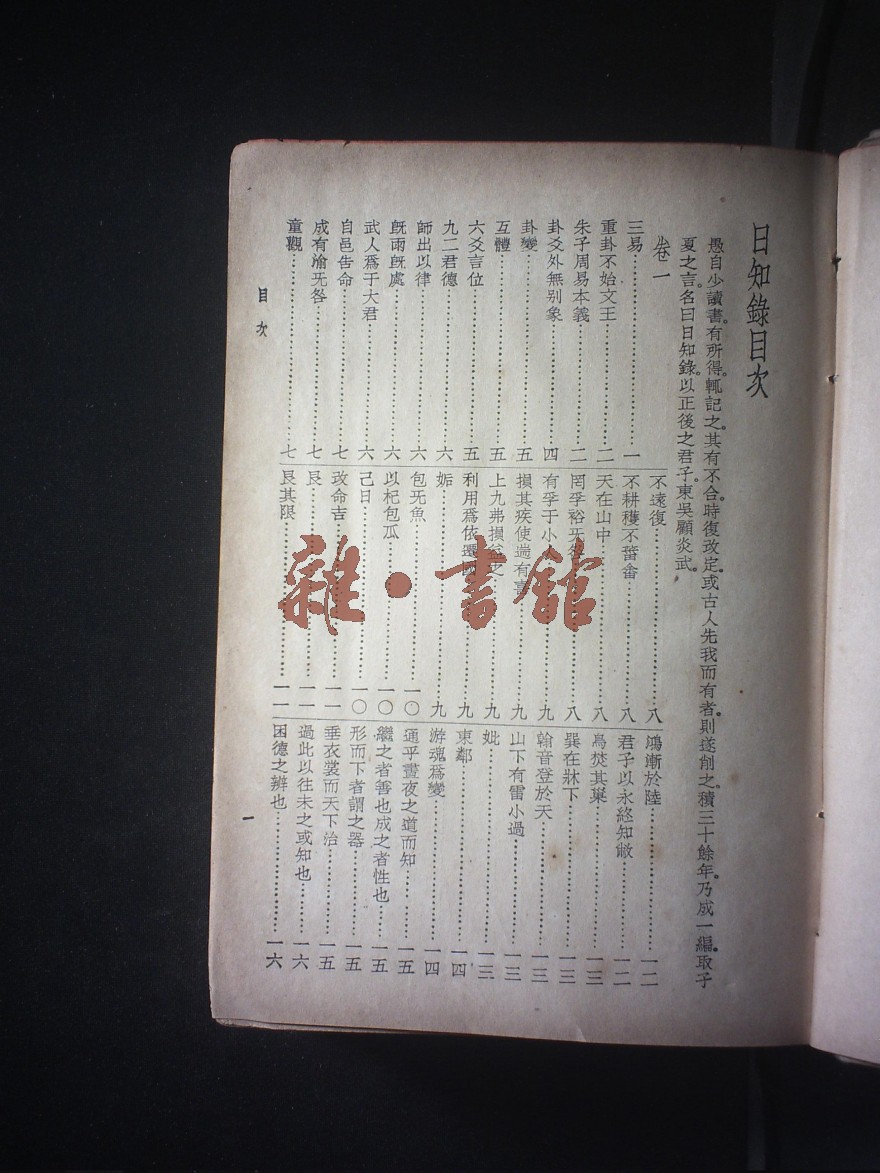 日知錄目次
愚自少讀書。有所得。輒記之。其有不合。時復改定。或古人先我而有者。則遂削之。積三十餘年。乃成一編。取子
夏之言。名曰日知錄。以正後之君子。東吳顧炎武。
卷一
三易……一
重卦不始文王……二
朱子周易本義……二
卦爻外無別象……四
卦變……五
互體……五
六爻言位……五
九二君德……六
師出以律……六
既雨既處……六
武人爲于大君……六
自邑告命……七
成有渝无咎……七
童觀……七
不遠復……八
不耕穫不菑畬……八
天在山中……八
罔孚裕无咎……八
有孚于小人……九
損其疾使遄有喜……九
上九弗損益之……九
利用爲依遷國……九
姤……九
包无魚……一〇
以杞包瓜……一〇
己日……一〇
改命吉……一一
艮……一一
艮其限……一一
鴻漸於陸……一二
君子以永終知敝……一二
鳥焚其巢……一三
巽在牀下……一三
翰音登於天……一三
山下有雷小過……一三
妣……一三
東鄰……一四
游魂爲變……一四
通乎晝夜之道而知……一五
繼之者善也成之者性也……一五
形而下者謂之器……一五
垂衣裳而天下治……一五
過此以往未之或知也……一六
困德之辨也……一六
目次
一
雜·書館